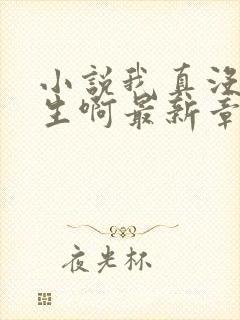 小説我真没
生啊最新章
夜光杯